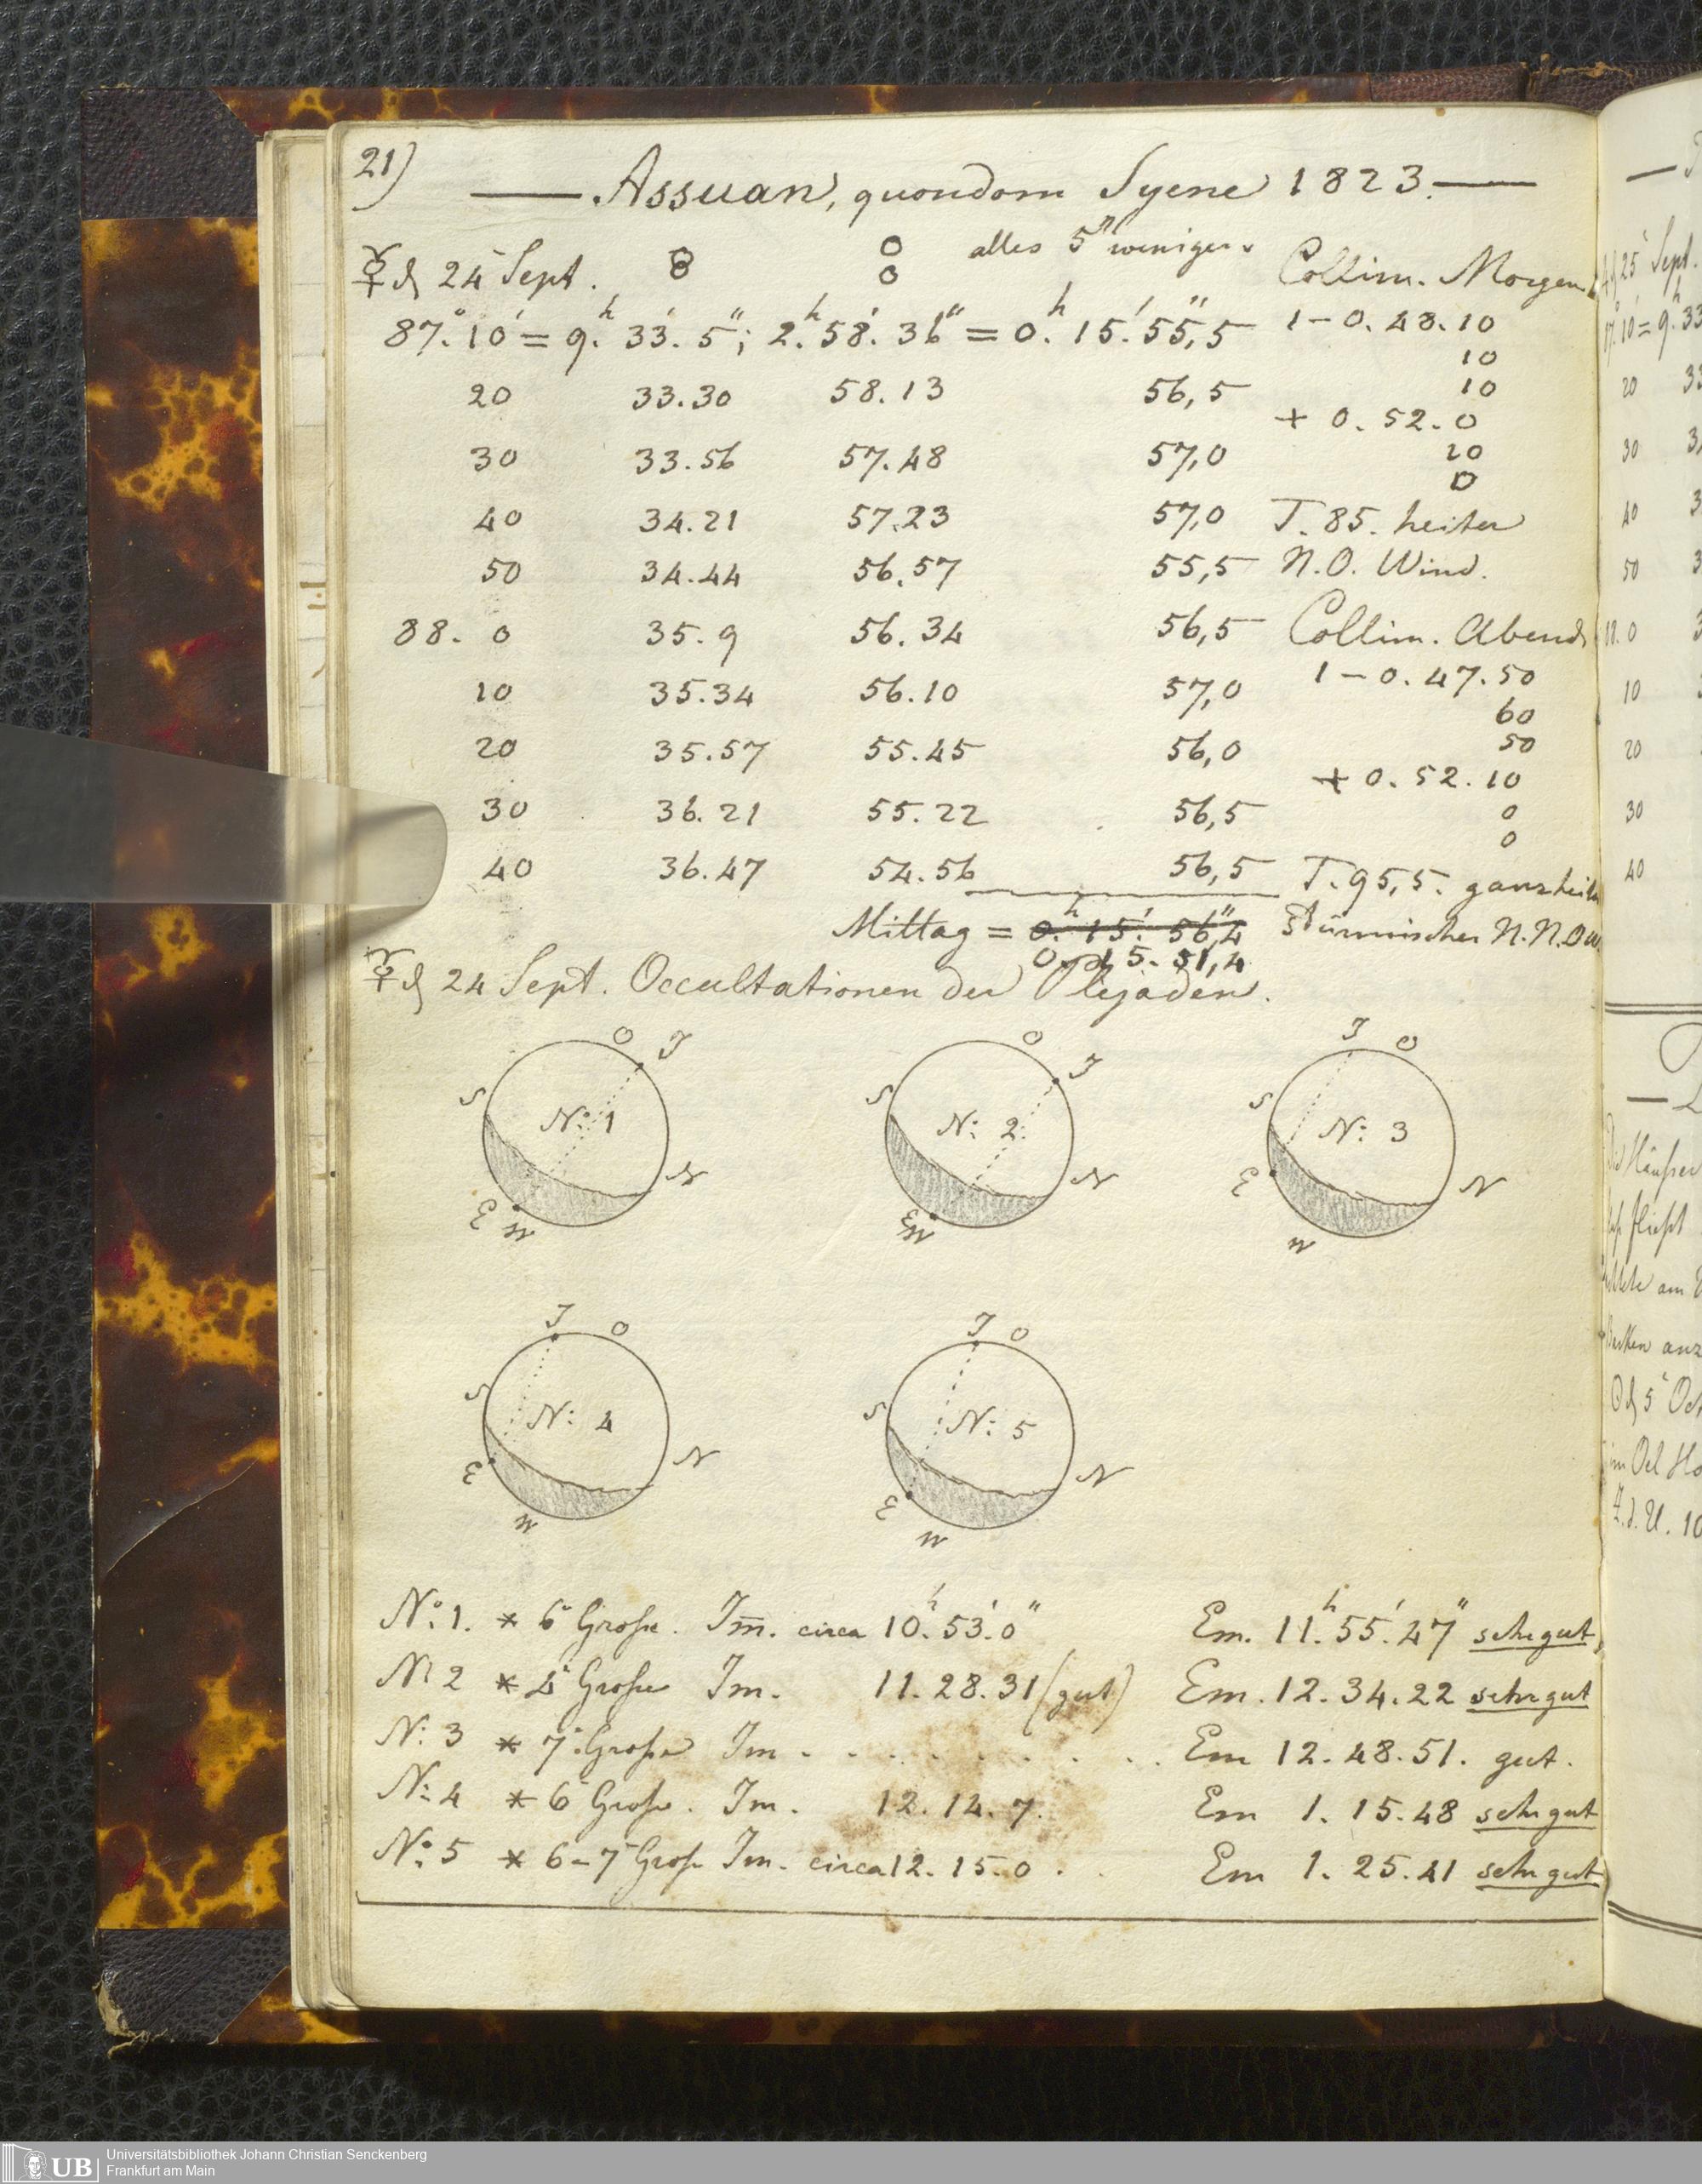 21)
Assuan, quondam Syene 1823.
☿ d 24 Sept. alles 5" weniger. Collim. Morgens
87.° 10' = 9.h 33.' 5"; 2.h 58.' 36" = 0.h 15.' 55",5 1-0.48.10
10
20 33.30 58.13 56,5 10
+ 0.52.0
30 33.56 57.48 57,0 20
0
40 34.21 57.23 57,0 T. 85. heiter
50 34.44 56.57 55,5 N.O. Wind.
88. 0 35.9 56.34 56,5 Collim. Abends
10 35.34 56.10 57,0 1-0.47.50
60
20 35.57 55.45 56,0 50
+ 0.52.10
30 36.21 55.22 56,5 0
0
40 36.47 54.56 56,5 T. 95,5. ganz heiter
Mittag = 0.h 15.' 56",4 Stürmischer N.N.O W.
0. 15. 51,4
☿ d 24 Sept. Occultationen der Plejaden.
O J
S N: 1 N
E W
O J
S N: 2. N
E W
J O
S N: 3 N
E W
J O
S N: 4 N
E W
J O
S N: 5 N
E W
No: 1. * 6 Große. Im̅. circa 10.h 53.' 0" Em. 11.h 55.' 27" sehr gut,
N: 2 * 4 Große Im. 11.28.31 (gut) Em. 12.34.22 sehr gut
N: 3 * 7 Große Im . . . . . . . . Em 12.48.51. gut.
N: 4 * 6 Große. Im. 12.14.7. Em 1.15.48 sehr gut
No: 5 * 6-7 Große Im. circa 12.15.0 . . Em 1.25.41 sehr gut
UB Universitätsbibliothek Johann Christian Senckenberg
Frankfurt am Main